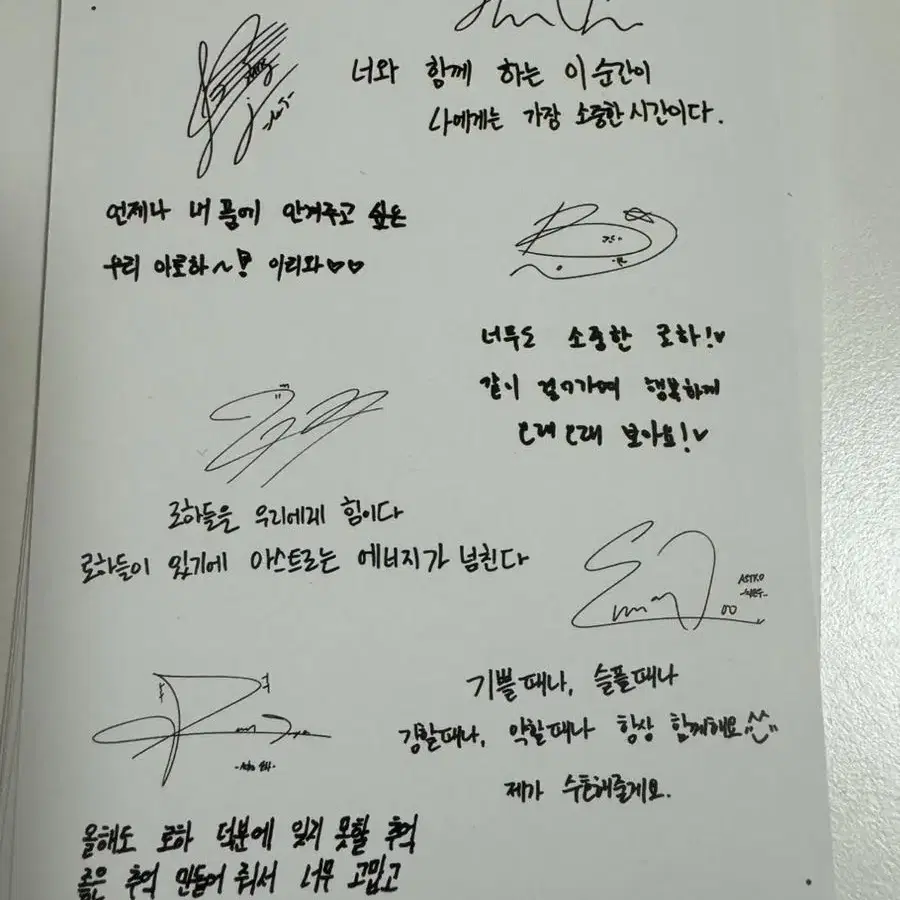 너와 함께 하는 이 순간이
나에게는 가장 소중한 시간이다.
언제나 내 품에 안겨주고 싶은
우리 아로하~! 이리와♡♡
너무도 소중한 로하!♥
같이 걸어가며 행복하게
오래오래 보아요!♥
로하들은 우리에게 힘이다
로하들이 있기에 아스트로는 에너지가 넘친다
ASTRO
기쁠때나, 슬플때나
강할때나, 약할때나 항상 함께해요^^
제가 수호해줄게요.
올해도 로하 덕분에 잊지 못할 추억
좋은 추억 만들어 줘서 너무 고맙고